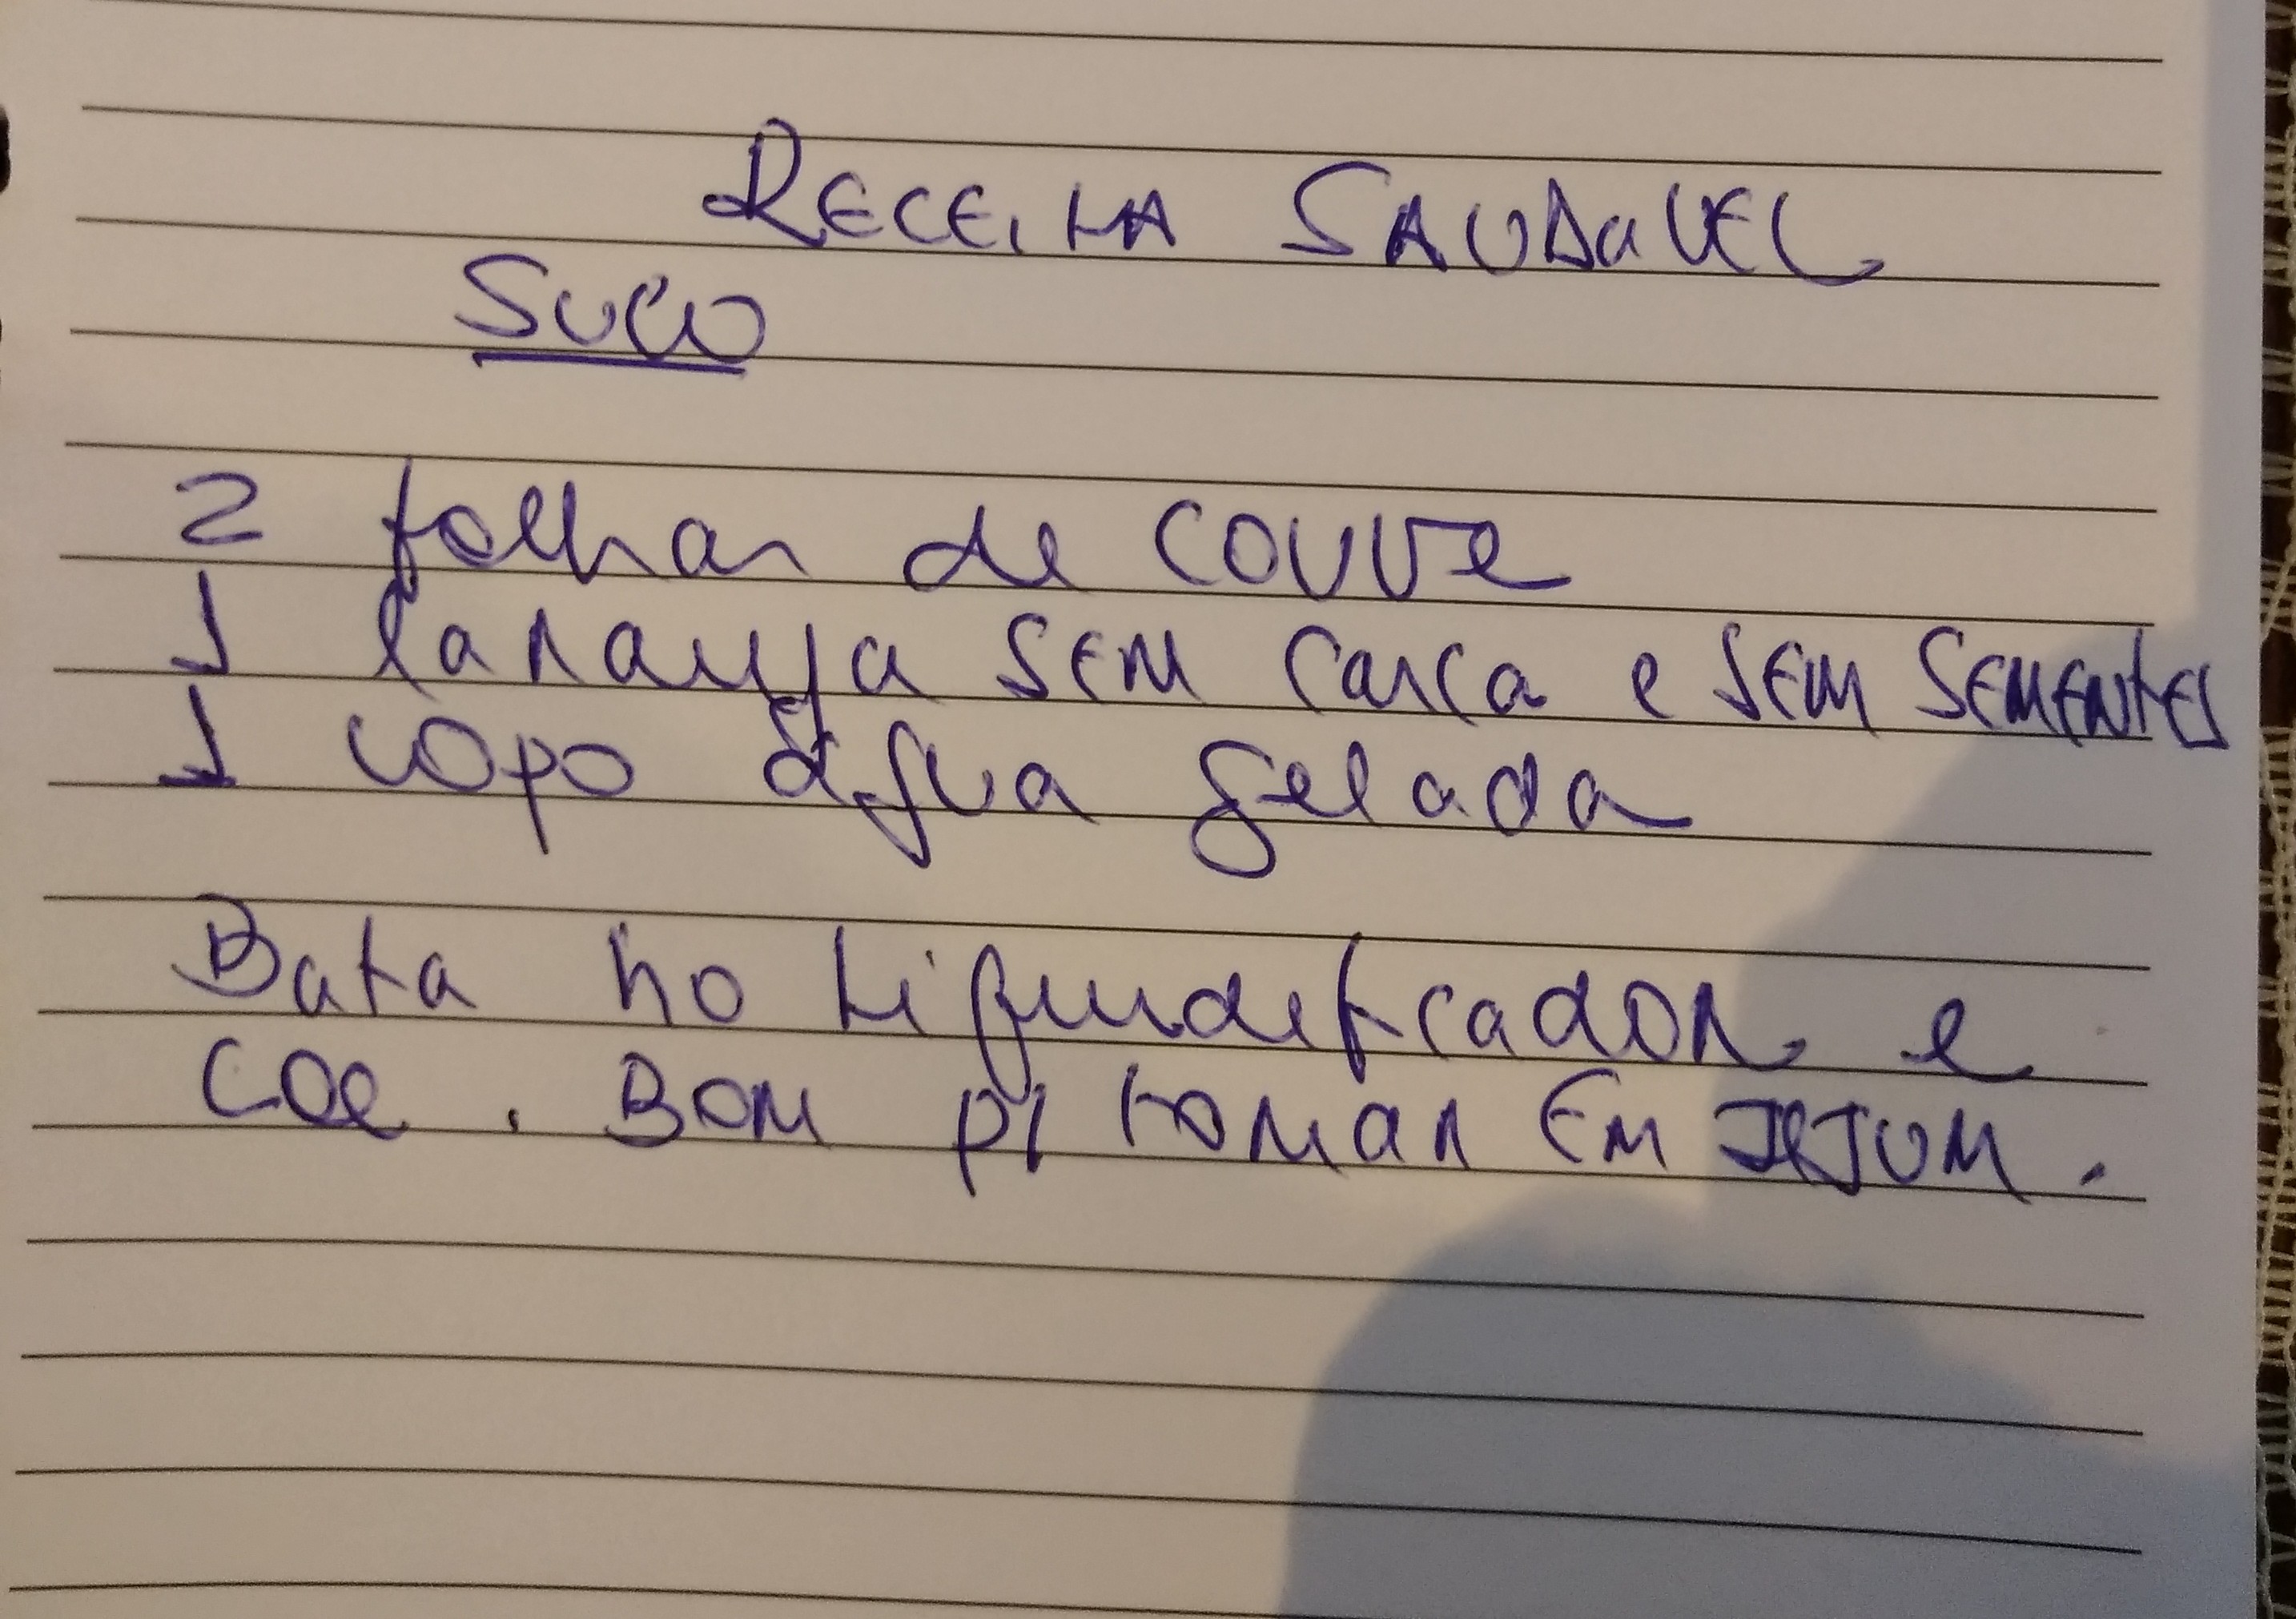 RECEITA SAUDAVEL
SUCO
2 folhas de couve
1 laranja SEM casca e SEM SEMENTES
1 copo água gelada
Bata no Liquidificador e
COE. BOM p/ tomar EM JEJUM.